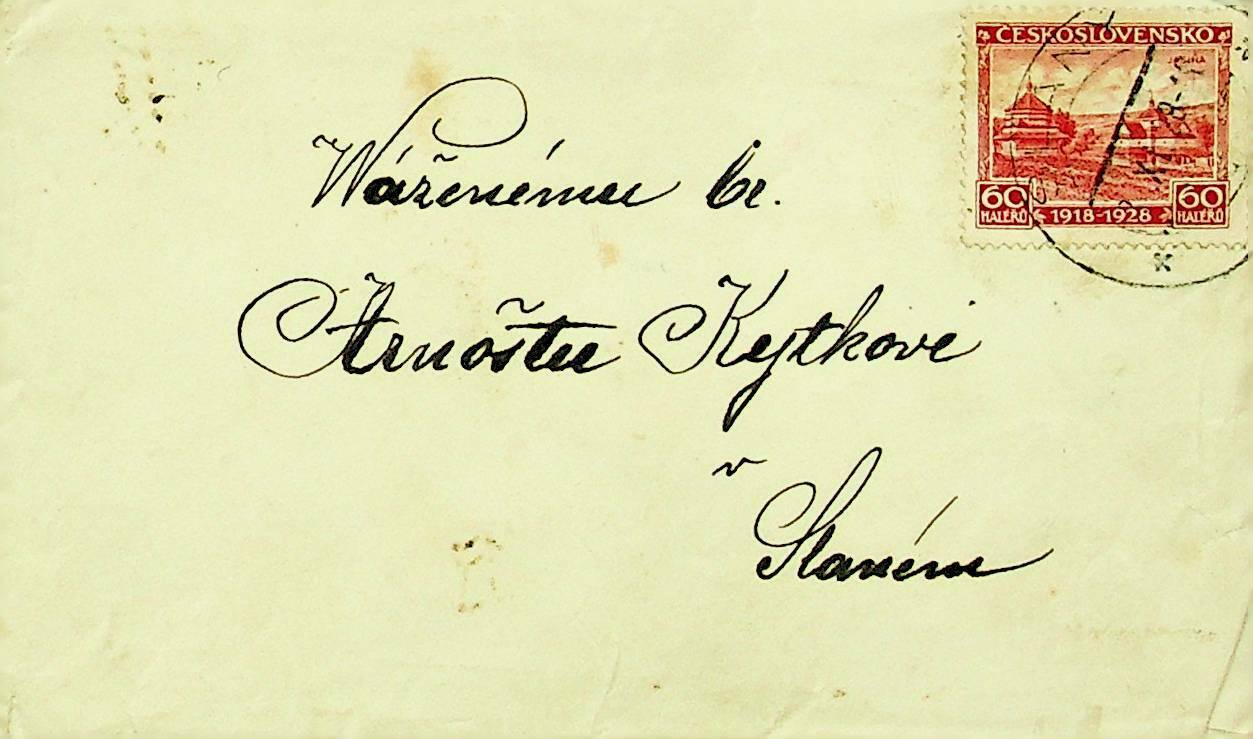 ČESKOSLOVENSKO
JASIŇA
60 HALÉŘŮ 1918-1928 60 HALÉŘŮ
Váženému br.
Arnoštu Kytkovi
v
Slaném